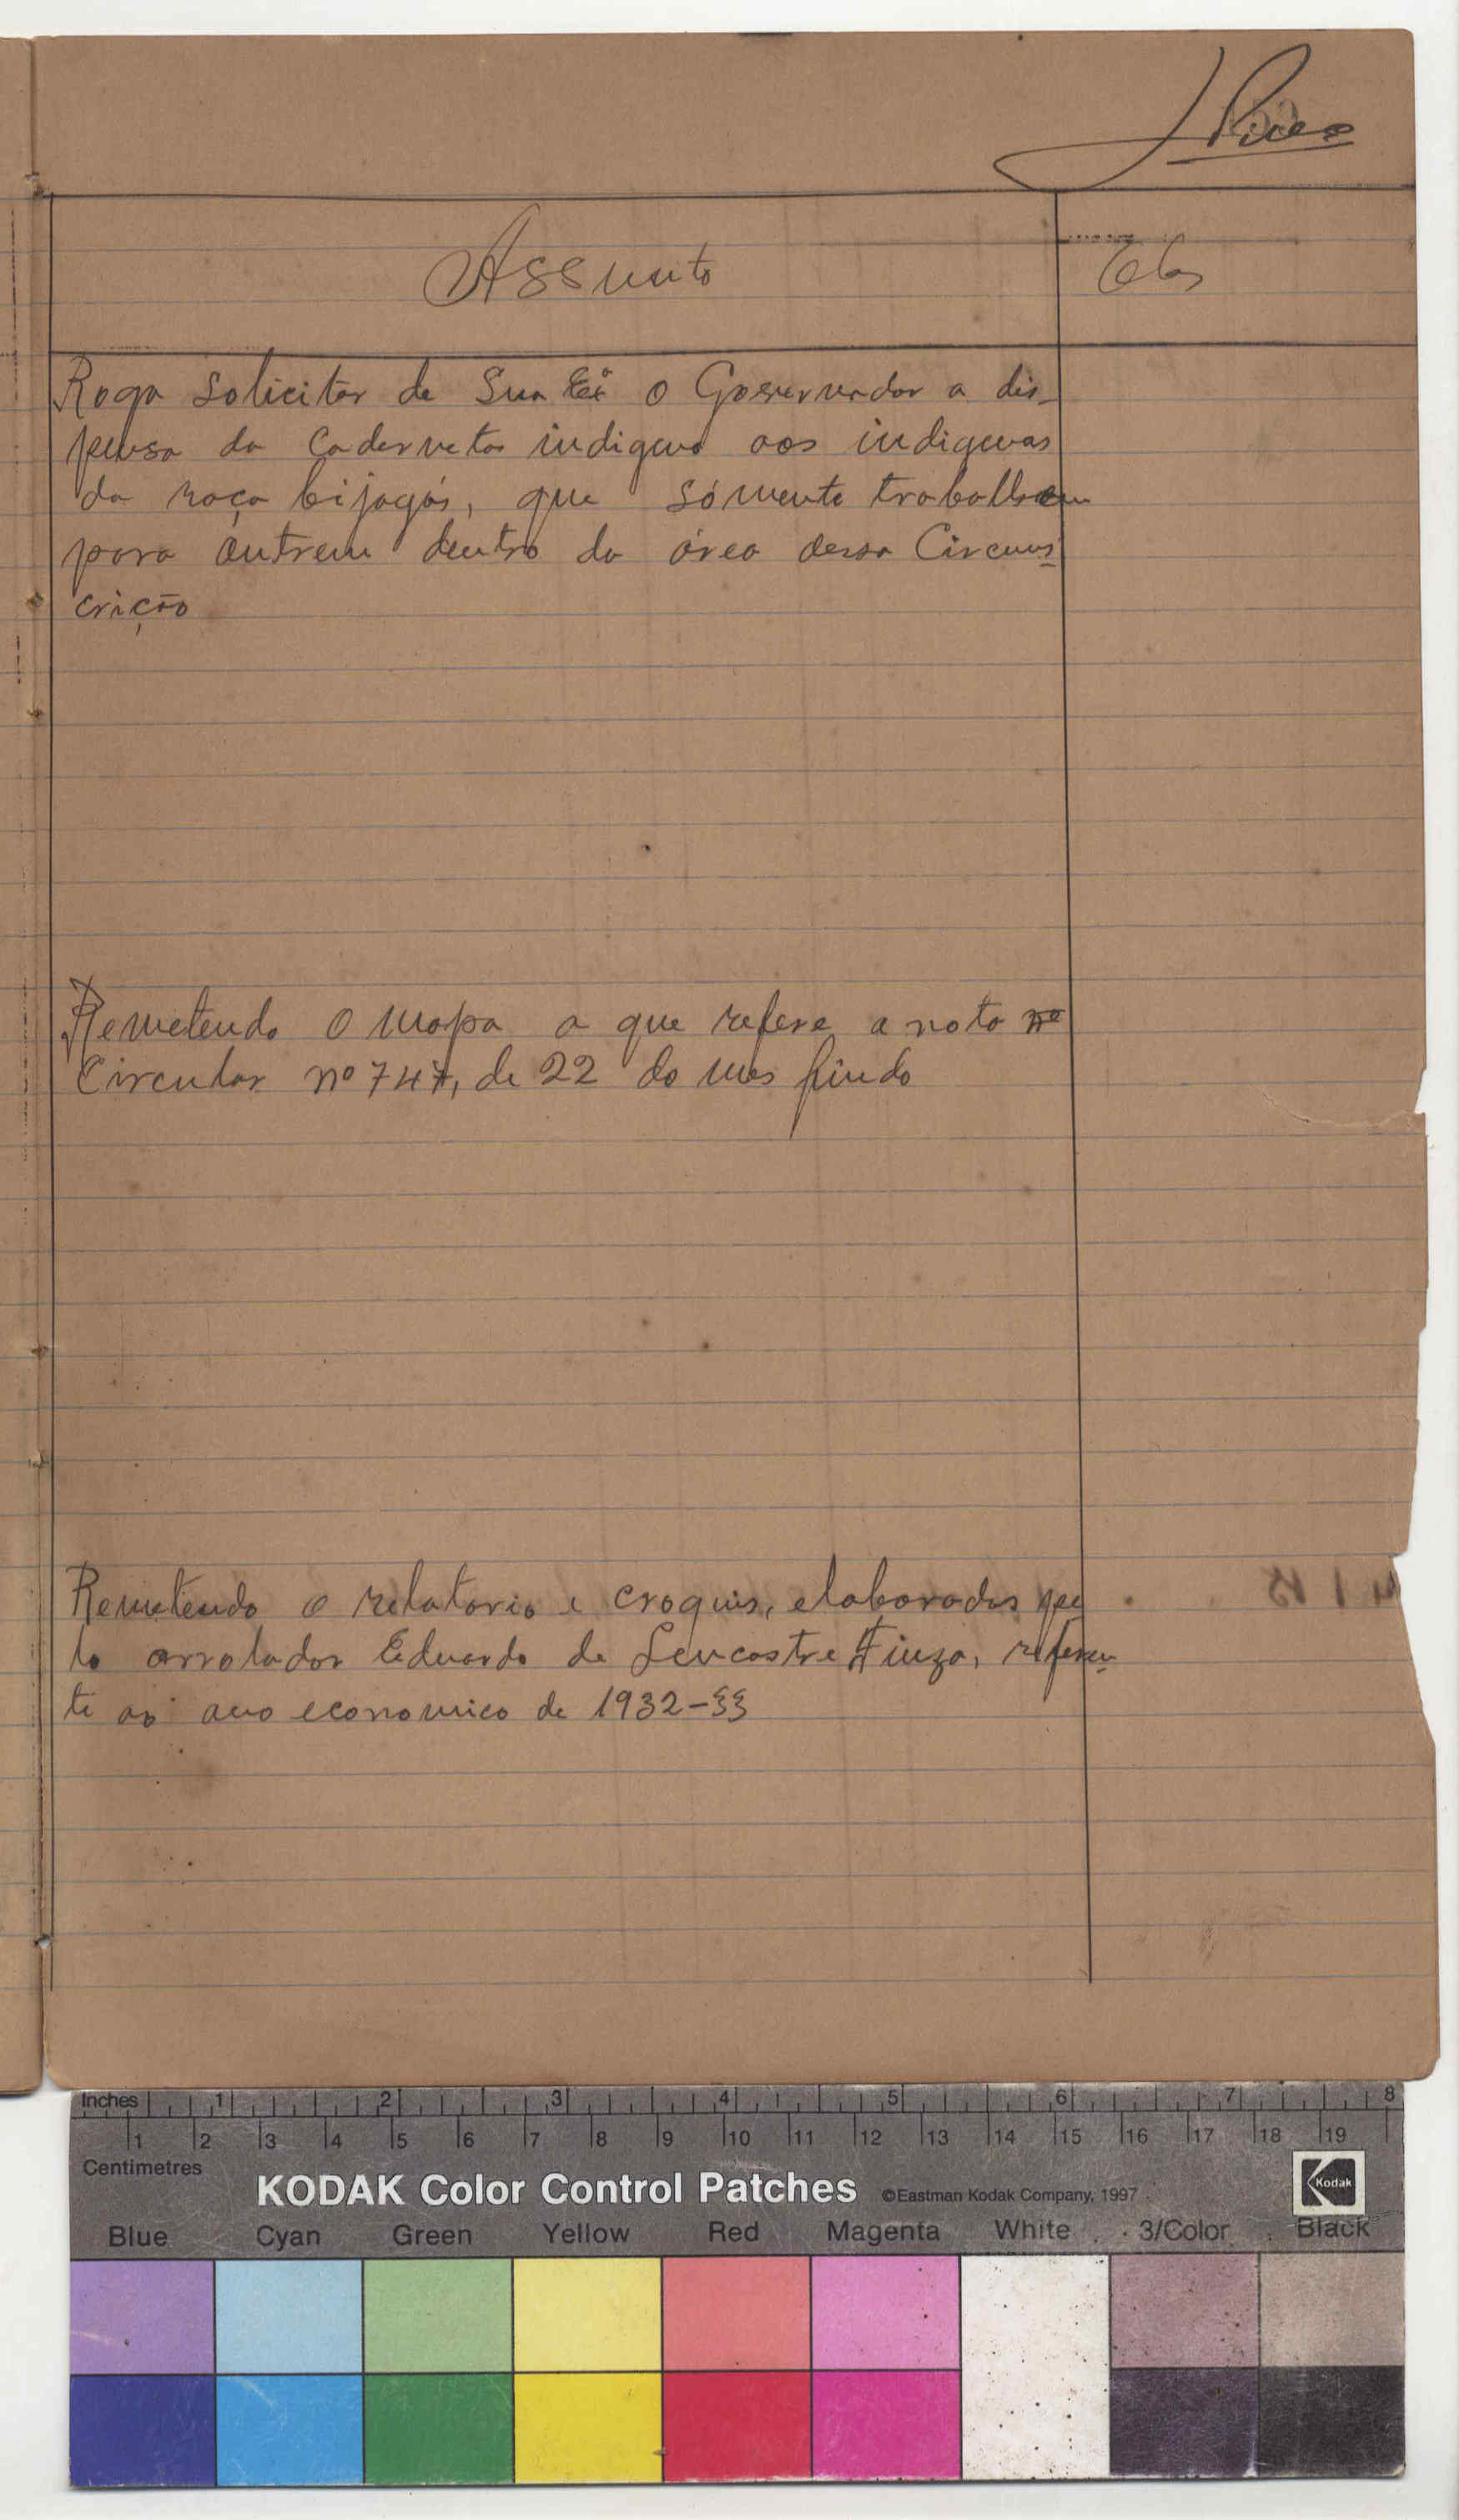 JPires
Assunto
Obs
Roga solicitar de Sua Exª o Governador a dis-
pensa da Cadernetas indigena aos indigenas
da raça bijagós, que sómente trabalham
para outrem dentro da área dessa Circuns
crição
Remetendo o mapa a que refere a nota nº
Circular nº 747, de 22 do mes findo
Remetendo o relatorio e croquis, elaborados pe
lo arrolador Eduardo de Lencastre Finza, referen-
te ao ano economico de 1932-33
Inches 1 2 3 4 5 6 7 8
1 2 3 4 5 6 7 8 9 10 11 12 13 14 15 16 17 18 19
Centimetres
KODAK Color Control Patches ©Eastman Kodak Company, 1997 Kodak
Blue Cyan Green Yellow Red Magenta White 3/Color Black